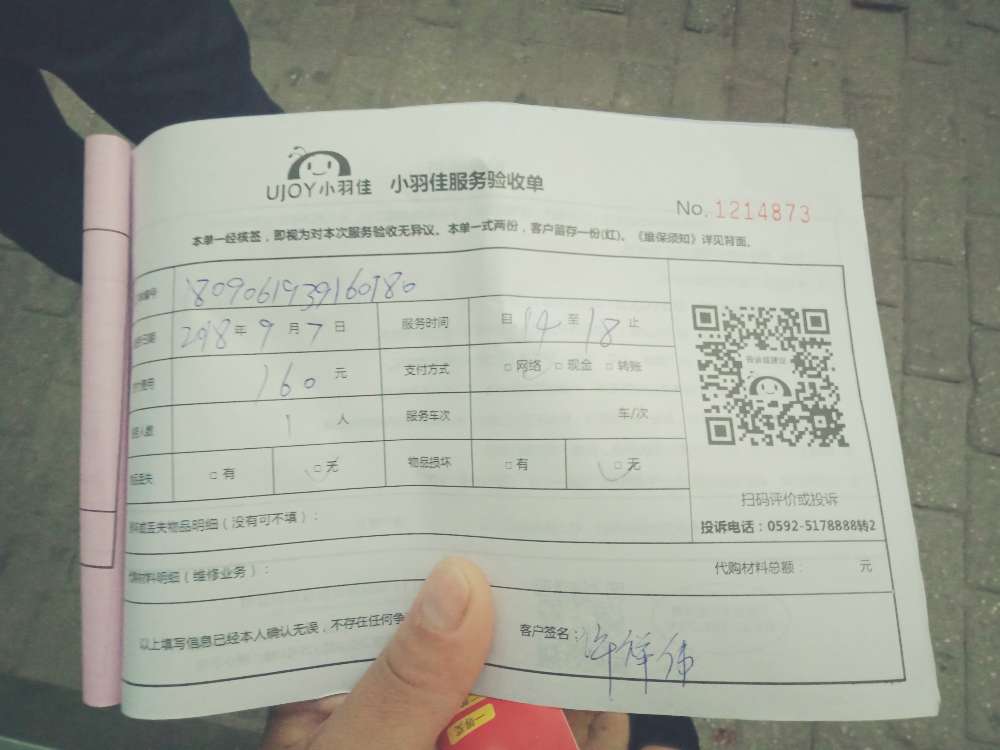 UJOY小羽佳 小羽佳服务验收单
No. 1214873
本单一经核签，即视为对本次服务验收无异议。本单一式两份，客户留存一份(红)。《维保须知》详见背面。
1809061939160180
2018年9月7日 服务时间 自14至18止
费用 160元 支付方式 □网络 □现金 □转账
人数 1人 服务车次 车/次
丢失 □有 □无 物品损坏 □有 □无
投诉或建议
扫码评价或投诉
投诉电话：0592-5178888转2
或丢失物品明细（没有可不填）：
材料明细（维修业务）： 代购材料总额： 元
以上填写信息已经本人确认无误，不存在任何争 客户签名：许祥伟